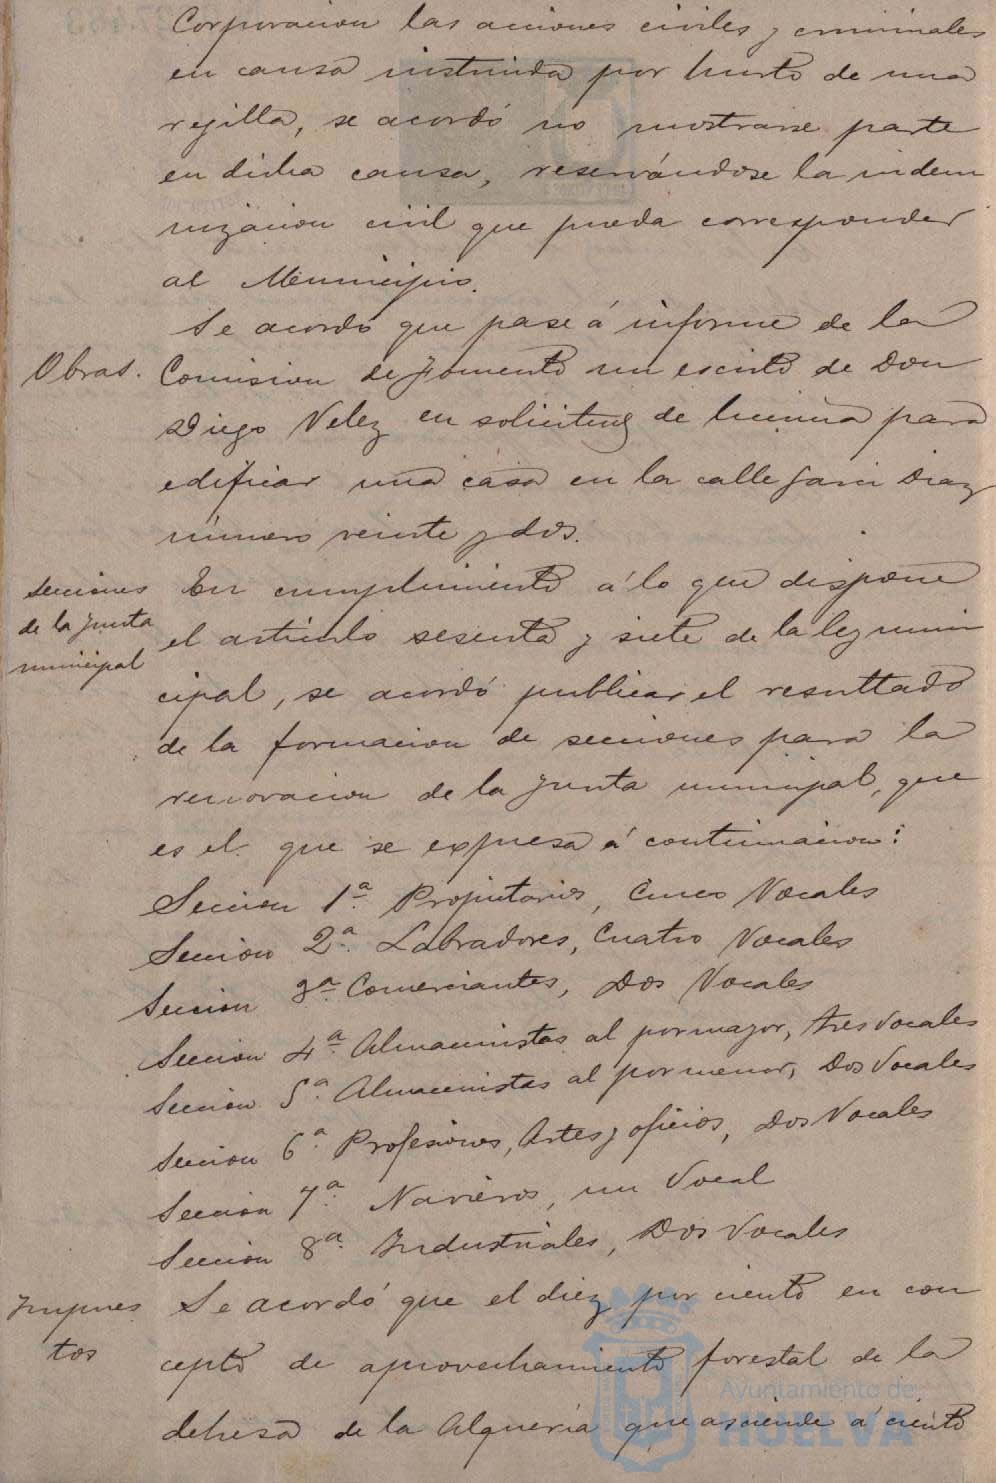 Corporacion las acciones civiles y criminales
en causa instruida por hurto de una
rejilla, se acordó no mostrarse parte
en dicha causa, reservándose la indem
nizacion civil que pueda corresponder
al Municipio.
Obras.
Se acordó que pase á informe de la
Comision de Fomento un escrito de Don
Diego Velez en solicitud de licencia para
edificar una casa en la calle Garci Diaz
número veinte y dos.
Secciones
de la Junta
municipal
En cumplimiento á lo que dispone
el artículo sesenta y siete de la ley muni
cipal, se acordó publicar el resultado
de la formacion de secciones para la
renovacion de la Junta municipal, que
es el que se expresa á continuacion:
Seccion 1ª Propietarios, Cinco Vocales
Seccion 2ª Labradores, Cuatro Vocales
Seccion 3ª Comerciantes, Dos Vocales
Seccion 4ª Almacenistas al por mayor, tres Vocales
Seccion 5ª Almacenistas al por menor, Dos Vocales
Seccion 6ª Profesiones, Artes y oficios, Dos Vocales
Seccion 7ª Navieros, un Vocal
Seccion 8ª Industriales, Dos Vocales
Impues
tos
Se acordó que el diez por ciento en con
cepto de aprovechamiento forestal de la
dehesa de la Alquería que asciende á ciento
Ayuntamiento de
HUELVA